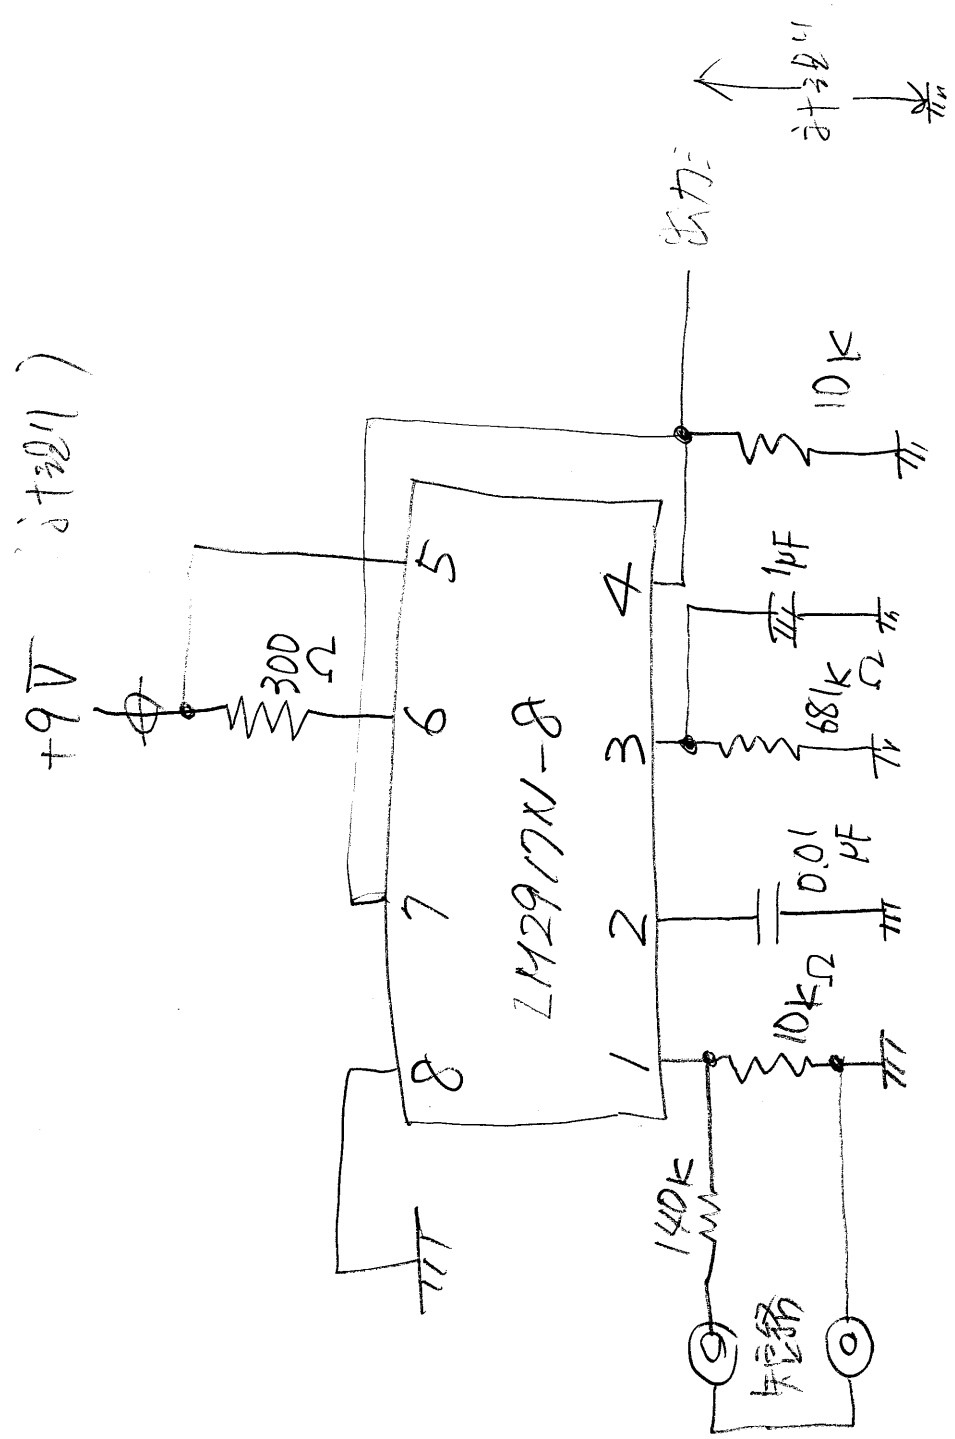 +9V
300
Ω
8 7 6 5
LM2917N-8
1 2 3 4
140K
出力
10KΩ
0.01
μF
681K
Ω
1μF
10K